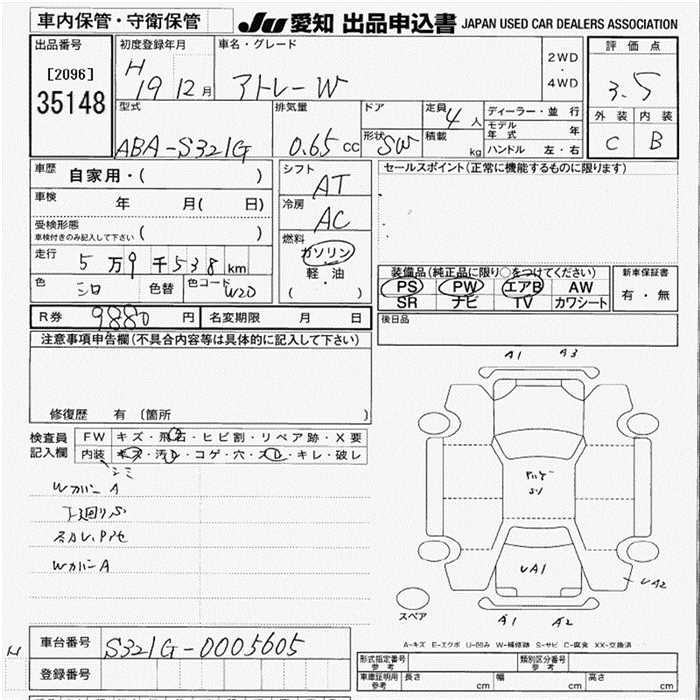 車内保管・守衛保管
JU 愛知 出品申込書 JAPAN USED CAR DEALERS ASSOCIATION
出品番号
[2096]
35148
初度登録年月
H 19 12 月
車名・グレード
アトレーW
2WD
・
4WD
評価点
3.5
外装 内装
C B
型式
ABA-S321G
排気量
0.65 cc
ドア
形状 SW
定員 4 人
積載 kg
ディーラー・並行
モデル年式 年
ハンドル 左・右
車歴 自家用・( )
車検 年 月( 日)
受検形態
車検付きのみ記入して下さい ( )
走行 5万9千538km
色 シロ 色替 色コード W20
シフト AT
冷房 AC
燃料
ガソリン
軽・油
( ・ )
セールスポイント(正常に機能するものに限ります)
装備品(純正品に限り○をつけてください)
PS PW エアB AW
SR ナビ TV カワシート
新車保証書
有・無
R券 9880 円 名変期限 月 日
後日品
注意事項申告欄(不具合内容等は具体的に記入して下さい)
修復歴 有 〔箇所 〕
検査員
記入欄
FW キズ・飛石・ヒビ割・リペア跡・X要
内装 キズ・汚レ・コゲ・穴・スレ・キレ・破レ
シミ
WカバーA
下廻りS
WカバーA
A1 A3
S1
UA1
UA2
スペア
A1 A2
A-キズ E-エクボ U-凹み W-補修跡 S-サビ C-腐食 XX-交換済
H
車台番号 S321G-0005605
登録番号
形式指定番号
参考
類別区分番号
参考
車庫証明用
参考
長さ cm 幅 cm 高さ cm